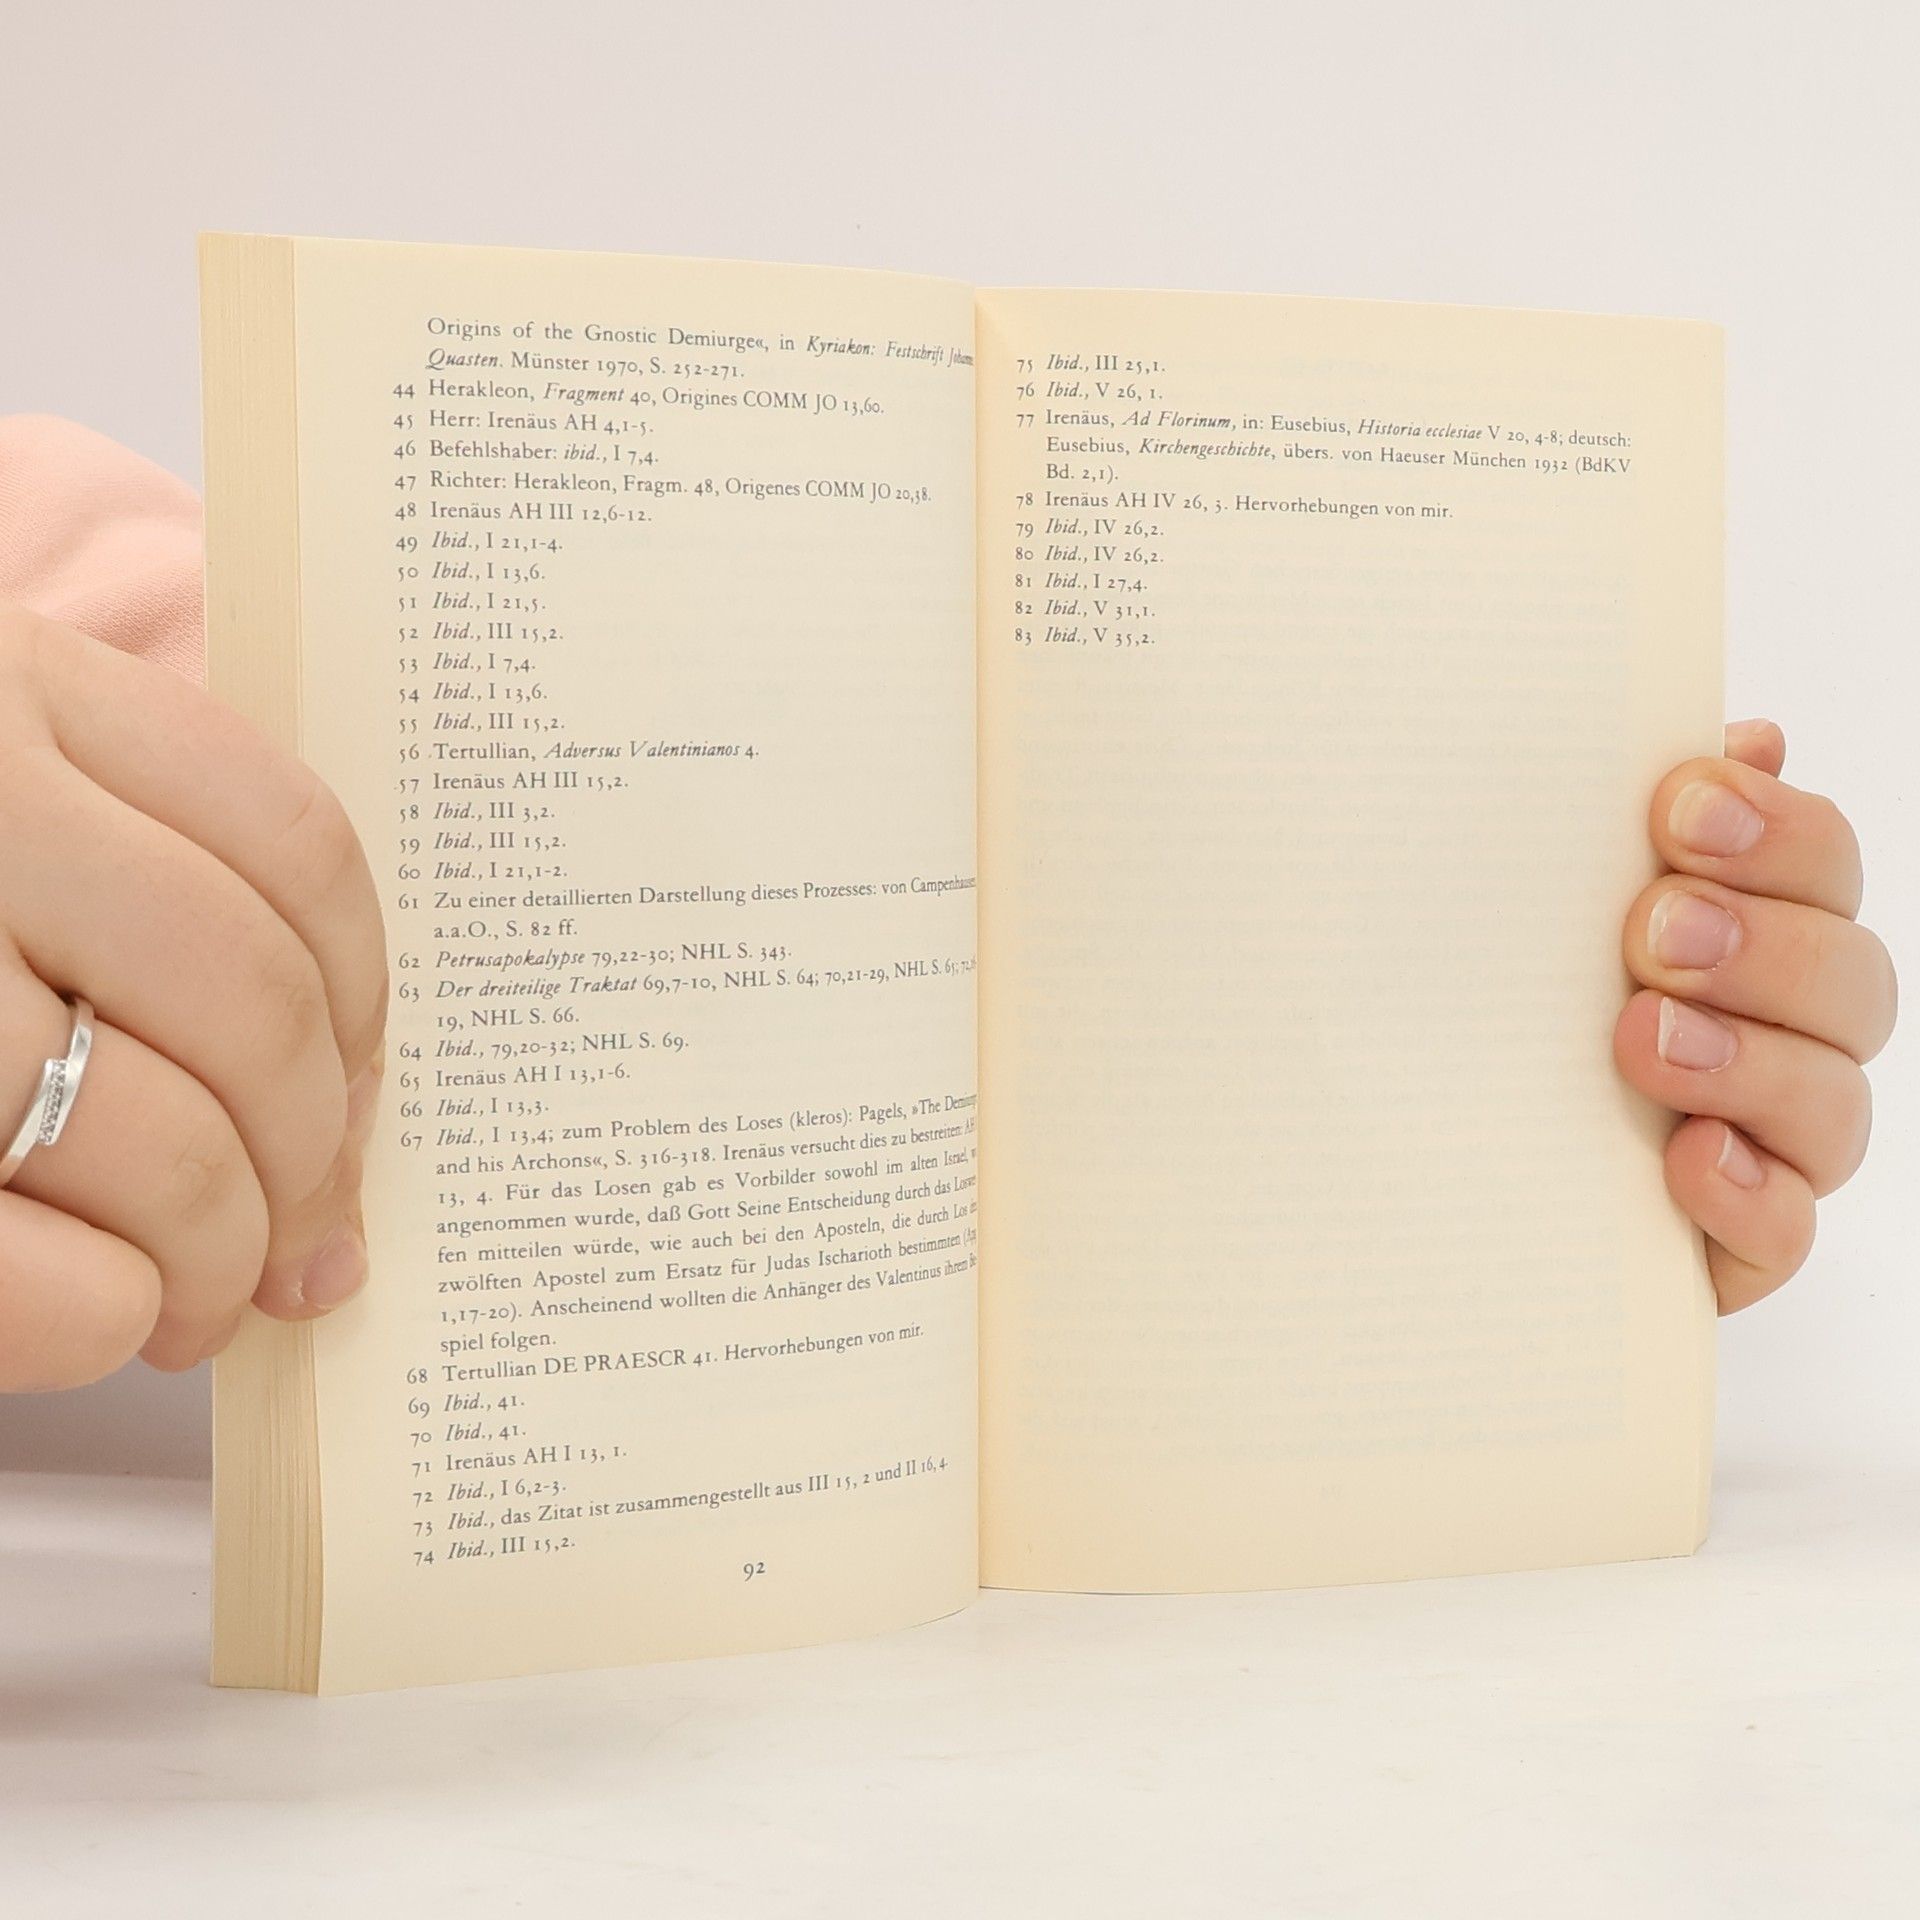 Origins of the Gnostic Demiurge«, in Kyriakon: Festschrift
Quasten. Münster 1970, S. 252-271.
44 Herakleon, Fragment 40, Origines COMM JO 13,60.
45 Herr: Irenäus AH 4,1-5.
46 Befehlshaber: ibid., I 7,4.
47 Richter: Herakleon, Fragm. 48, Origenes COMM JO 20,38.
48 Irenäus AH III 12,6-12.
49 Ibid., I 21,1-4.
50 Ibid., I 13,6.
51 Ibid., I 21,5.
52 Ibid., III 15,2.
53 Ibid., I 7,4.
54 Ibid., I 13,6.
55 Ibid., III 15,2.
56 Tertullian, Adversus Valentinianos 4.
57 Irenäus AH III 15,2.
58 Ibid., III 3,2.
59 Ibid., III 15,2.
60 Ibid., I 21,1-2.
61 Zu einer detaillierten Darstellung dieses Prozesses: von Campenhausen
a.a.O., S. 82 ff.
62 Petrusapokalypse 79,22-30; NHL S. 343.
63 Der dreiteilige Traktat 69,7-10, NHL S. 64; 70,21-29, NHL S. 65;
19, NHL S. 66.
64 Ibid., 79,20-32; NHL S. 69.
65 Irenäus AH I 13,1-6.
66 Ibid., I 13,3.
67 Ibid., I 13,4; zum Problem des Loses (kleros): Pagels, »The
and his Archons«, S. 316-318. Irenäus versucht dies zu bestreiten: AH
13, 4. Für das Losen gab es Vorbilder sowohl im alten Israel,
angenommen wurde, daß Gott Seine Entscheidung durch das
fen mitteilen würde, wie auch bei den Aposteln, die durch Los
zwölften Apostel zum Ersatz für Judas Ischarioth bestimmten
1,17-20). Anscheinend wollten die Anhänger des Valentinus ihrem
spiel folgen.
68 Tertullian DE PRAESCR 41. Hervorhebungen von mir.
69 Ibid., 41.
70 Ibid., 41.
71 Irenäus AH I 13, 1.
72 Ibid., I 6,2-3.
73 Ibid., das Zitat ist zusammengestellt aus III 15, 2 und II 16, 4.
74 Ibid., III 15,2.
92
75 Ibid., III 25,1.
76 Ibid., V 26, 1.
77 Irenäus, Ad Florinum, in: Eusebius, Historia ecclesiae V 20, 4-8; deutsch:
Eusebius, Kirchengeschichte, übers. von Haeuser München 1932 (BdKV
Bd. 2,1).
78 Irenäus AH IV 26, 3. Hervorhebungen von mir.
79 Ibid., IV 26,2.
80 Ibid., IV 26,2.
81 Ibid., I 27,4.
82 Ibid., V 31,1.
83 Ibid., V 35,2.